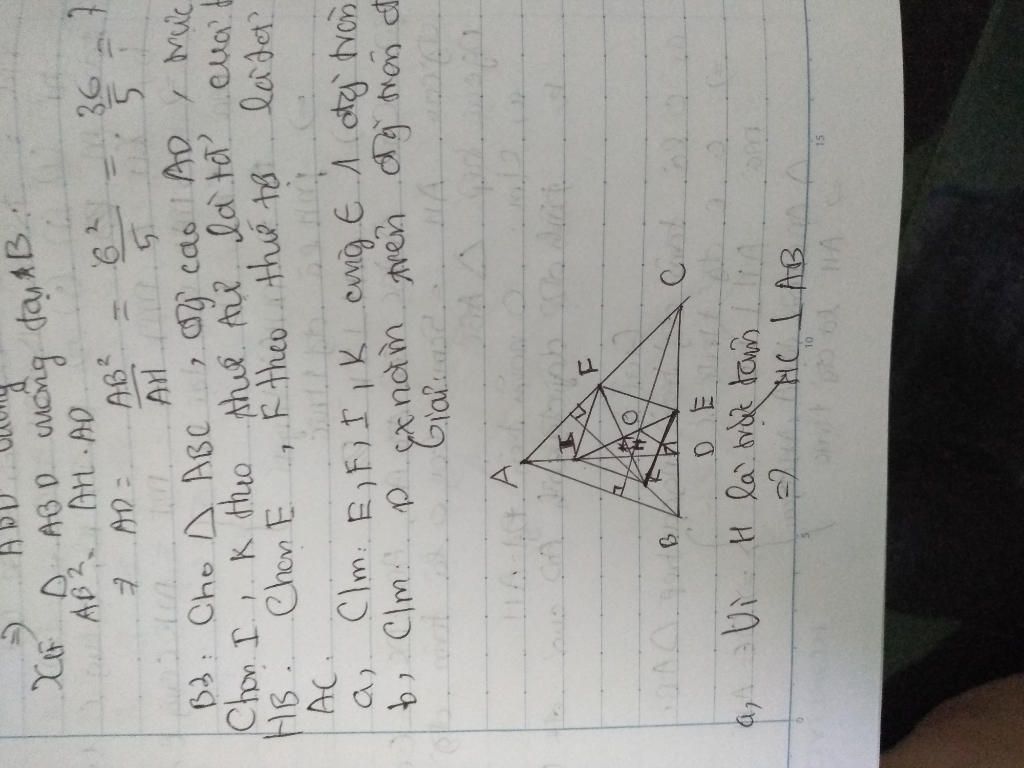 =) ABD vuông
Xét Δ ABD vuông tại B.
AB² = AH.AD
=> AD = AB²/AH = 6²/5 = 36/5 = 7
B3: Cho Δ ABC, đg cao AD, trực
Chọn I, K theo thứ tự là tđ của
HB. Chọn E, F theo thứ tự là tđ
AC.
a, C/m: E, F, I, K cùng ∈ 1 đg tròn
b, C/m: D nằm trên đg tròn đ
Giải:
A
I
F
H
O
K
B
D
E
C
a, Vì H là trực tâm
=) HC ⊥ AB
0
5
10
15